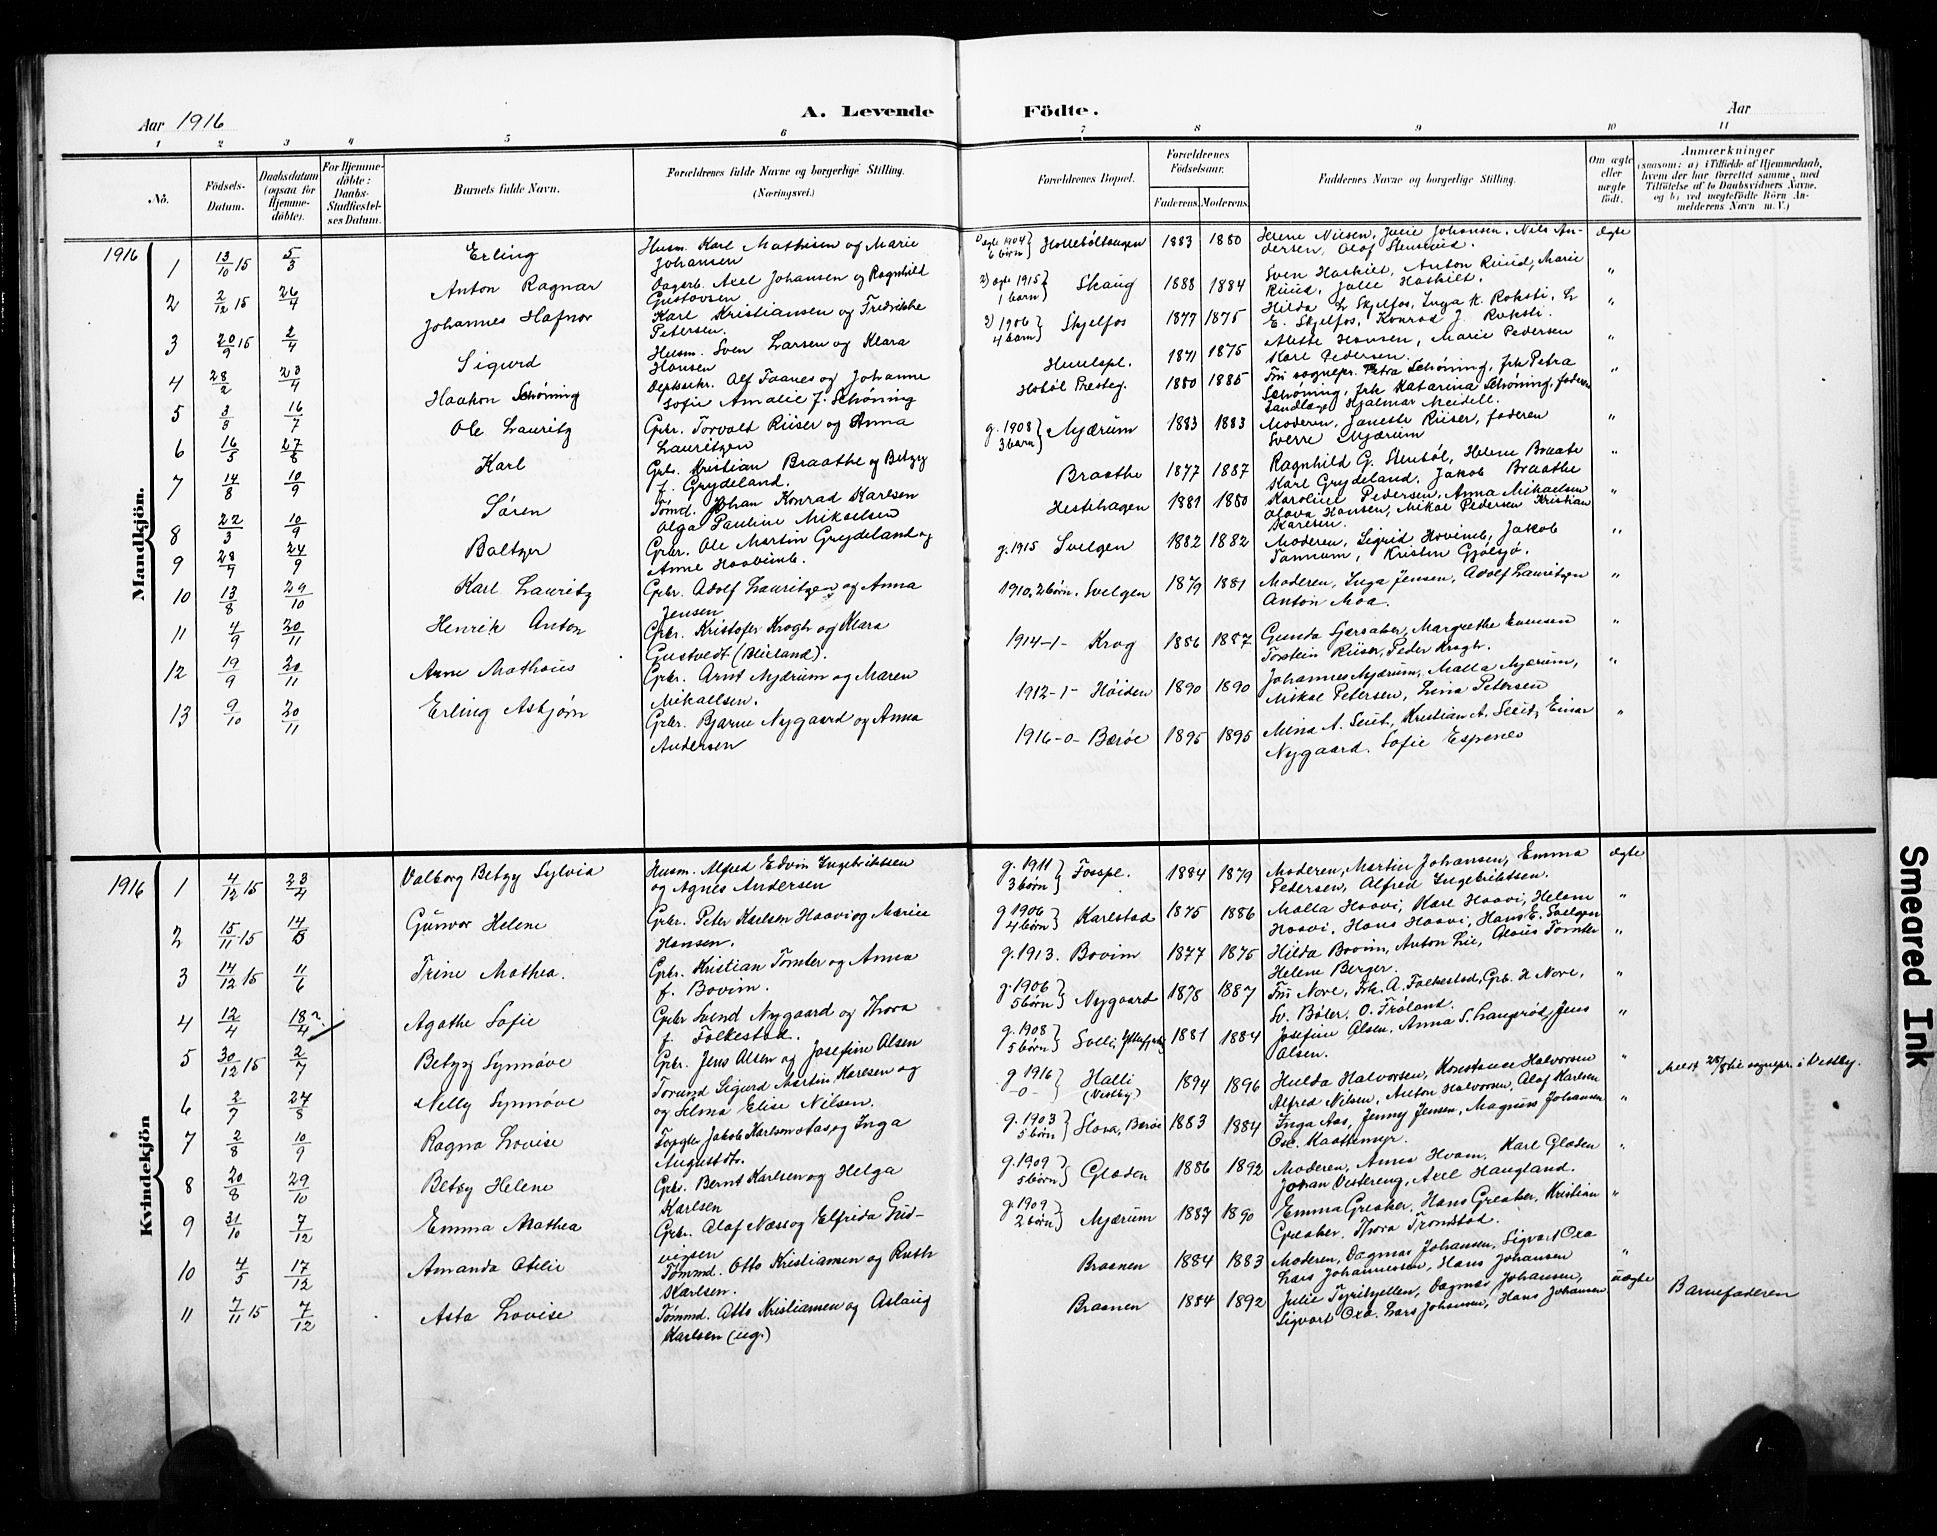 Aar 1916
A. Levende
Födte.
Aar
1 2 3 4 5 6 7 8 9 10 11
No.
Födsels-Datum.
Daabsdatum (ogsaa for Hjemme-döbte).
For Hjemme-döbte: Daabs-Stadfæstel-ses Datum.
Barnets fulde Navn.
Forældrenes fulde Navne og borgerlige Stilling.
(Næringsvei.)
Forældrenes Bopæl.
Forældrenes Födselsaar.
Faderens. Moderens.
Faddernes Navne og borgerlige Stilling.
Om ægte eller uægte födt.
Anmærkninger
(saasom: a) i Tilfælde af Hjemmedaab,
hvem der har forrettet samme, med
Tilföielse af to Daabsvidners Navne.
og b) ved uægtefödte Börn An-
melderens Navn m. V.)
Mandkjön.
1916 1 13/10 15 5/3 Erling Husm. Karl Mathisen og Marie
Johansen 1904 6 børn 1883 1880 Helene Nilsen, Julie Johansen, Nils An-
dersen, Olaf Stensrud. ægte
2 2/12 15 26/4 Anton Ragnar Dagarb. Axel Johansen og Ragnhild
Gustavsen 2) ægte 1915 1 barn Skaug 1888 1884 Sven Haskilt, Anton Ruud, Marie
Ruud, Julie Haskilt. "
3 20/9 15 2/4 Johannes Hafnor Karl Kristiansen og Fredrikke
Petersen. 2) 1906 4 barn Skjelfos 1877 1875 Hilda L Skjelfos, Inga K. Roksti, L
E. Skjelfos, Konrad J. Roksti. "
4 28/2 23/4 Sigurd Husm. Sven Larsen og Klara
Hansen 1871 1875 Mette Hansen, Marie Pedersen
Karl Pedersen. "
5 3/8 16/7 Haakon Schøning Deptssekr. Alf Faanes og Johanne
Sofie Amalie f. Schöning Hobøl Presteg. 1880 1885 Fru sognepr. Petra Schøning, frk Petra
Schøning, frk Katarina Schøning, faderen
Landlæge Hjalmar Meidell. "
6 16/5 27/8 Ole Lauritz Grbr. Torvald Riiser og Anna
Lauritzen g. 1908 3 barn Mjærum 1883 1883 Moderen, Janette Riiser, faderen
Sverre Mjærum "
7 14/8 10/9 Karl Grbr. Kristian Braathe og Betzy
f. Grydeland. Braathe 1877 1887 Ragnhild G. Stenbøl, Helene Braate
Karl Grydeland. Jakob Braathe "
8 22/3 10/9 Søren Tømd. Johan Konrad Karlsen
Olga Pauline Mikaelsen Hestehagen 1881 1880 Karoline Pedersen, Anna Mikaelsen
Olava Hansen, Mikal Pedersen Kristian
Karlsen. "
9 24/9 Baltzer Grbr. Ole Martin Grydeland og
Anne Haavimb. g. 1915 Svelgen 1882 1882 Moderen, Sigrid Hovimb, Jakob
Tomum, Kristen Gjølsjø. "
10 13/8 29/10 Karl Lauritz Grbr. Adolf Lauritzen og Anna
Jensen 1910, 2 børn. Svelgen 1879 1881 Moderen, Inga Jensen, Adolf Lauritzen
Anton Moa. "
11 4/9 20/11 Henrik Anton Grbr. Kristofer Krogh og Klara
Gustvedt 1914-1- Krog 1886 1887 Gunda Sjersaker, Margrethe Evensen
Torstein Riiser, Peder Krogh. "
12 19/9 20/11 Arne Mathæus Grbr. Arnt Mjærum og Maren
Mikaelsen. 1912-1- Høiden 1890 1890 Johannes Mjærum, Malla Mjærum,
Mikal Petersen, Lina Petersen "
13 9/10 20/11 Erling Asbjørn Grbr. Bjarne Nygaard og Anna
Andersen 1916-0- Bærøe 1895 1895 Mina A. Seut, Kristian A. Seut, Einar
Nygaard. Sofie Espenes "
Kvindekjön
1916 1 4/12 15 23/4 Valborg Betzy Sylvia Husm. Alfred Edvin Ingebriktsen
og Agnes Andersen g. 1911 3 børn Fosspl. 1884 1879 Moderen, Martin Johansen, Emma
Pedersen, Alfred Ingebriktsen. ægte
2 15/11 15 14/5 Gunvor Helene Grbr. Peter Karlsen Haavi og Marie
Hansen. g 1906 4 børn Karlstad 1875 1886 Malla Haavi, Karl Haavi, Helene
Haavi, Hans Haavi, Hans E. Svelgen "
3 14/12 15 11/6 Trine Mathea. Grbr. Kristian Tomter og Anna
f. Bovim. g. 1913. Bovim 1877 1875 Hilda Bovim, Anton Lie, Olous Tomter
Helene Berger. "
4 12/4 18/4 ? Agathe Sofie Grbr Svend Nygaard og Thora
f. Folkestad. g. 1906 5 børn Nygaard 1878 1887 Fru Nore, Frk. A. Folkestad, Grb. H Nore,
Sv. Bøler, O. Frøland. "
5 30/12 15 2/7 Betzy Synnøve Grbr. Jens Olsen og Josefine Olsen g. 1908 5 børn Solli, 1881 1884 Josefine Olsen, Anna S. Langerød, Jens
Olsen. "
6 2/7 27/8 Nelly Synnøve Torund Sigurd Martin Karlsen og
og Selma Elise Nilsen. g 1916 -0- Halli (Vestby) 1894 1896 Hulda Halvorsen, Konstance Halvorsen
Alfred Nilsen, Anton Halvorsen, Olaf Karlsen " Meldt 28/8 til sognepr. i Vestby.
7 2/8 10/9 Ragna Lovise Jakob Karlsen Aas og Inga
Augustdt. g. 1903 5 børn Bærøe 1883 1884 Inga Aas, Jenny Jensen, Magnus Johansen
Osc. Kaatemyr. "
8 20/8 29/10 Betzy Helene Grbr. Bernt Karlsen og Helga
Karlsen g. 1909 5 børn Gladen 1886 1892 Moderen, Anna Hvam, Karl Gladen
Johan Vestereng, Axel Haugland. "
9 31/10 7/12 Emma Mathea Grbr. Olaf Næss og Elfrida Gud-
vigsen g. 1909 2 børn Mjærum 1887 1890 Emma Greaker, Hans Greaker, Kristian
Greaker, Thora Tronstad. "
10 4/5 17/12 Amanda Otilie Tømmd. Otto Kristiansen og Ruth
Karlsen. Braanen 1884 1883 Moderen, Dagmar Johansen, Sigvart Oxa
Lars Johannessen, Hans Johansen "
11 7/11 15 7/12 Asta Lovise Tømmd. Otto Kristiansen og Aslaug
Karlsen (ug.) Braanen 1884 1892 Julie Tyrihjellen, Dagmar Johansen,
Sigvart Oxa. Lars Johansen, Hans Johansen uægte Barnefaderen
Smeared Ink